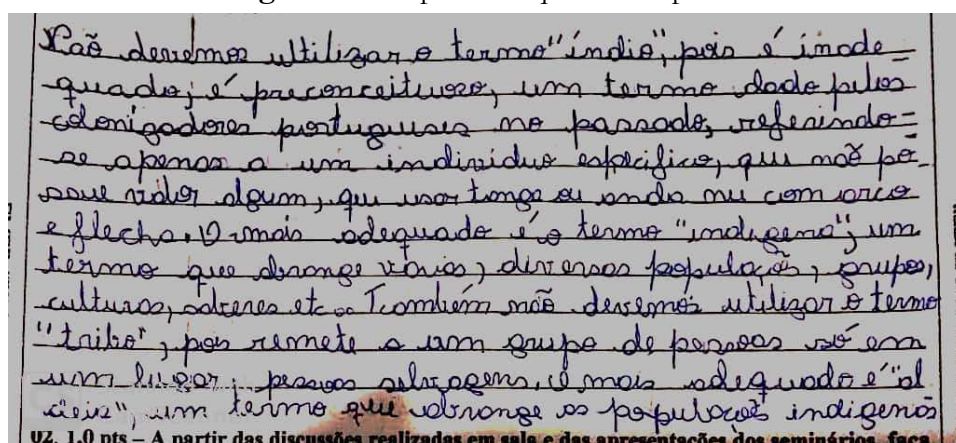 Não devemos ultilizar o termo "índio", pois é inade
quado; é preconceituoso, um termo dado pelos
colonizadores portugueses no passado, referindo-
se apenas a um indivíduo específico, que não po-
ssue valor algum, que usa tanga ou anda nu com arco
e flecha. O mais adequado é o termo "indígena", um
termo que abrange vários, diversas populações, grupos,
culturas, saberes etc.. Também não devemos utilizar o termo
"tribo", pois remete a um grupo de pessoas só em
um lugar, pessoas selvagens, o mais adequado é "al
deia", um termo que abrange as populações indígenas
02. 1,0 pts – A partir das discussões realizadas em sala e das apresentações dos seminários, faça